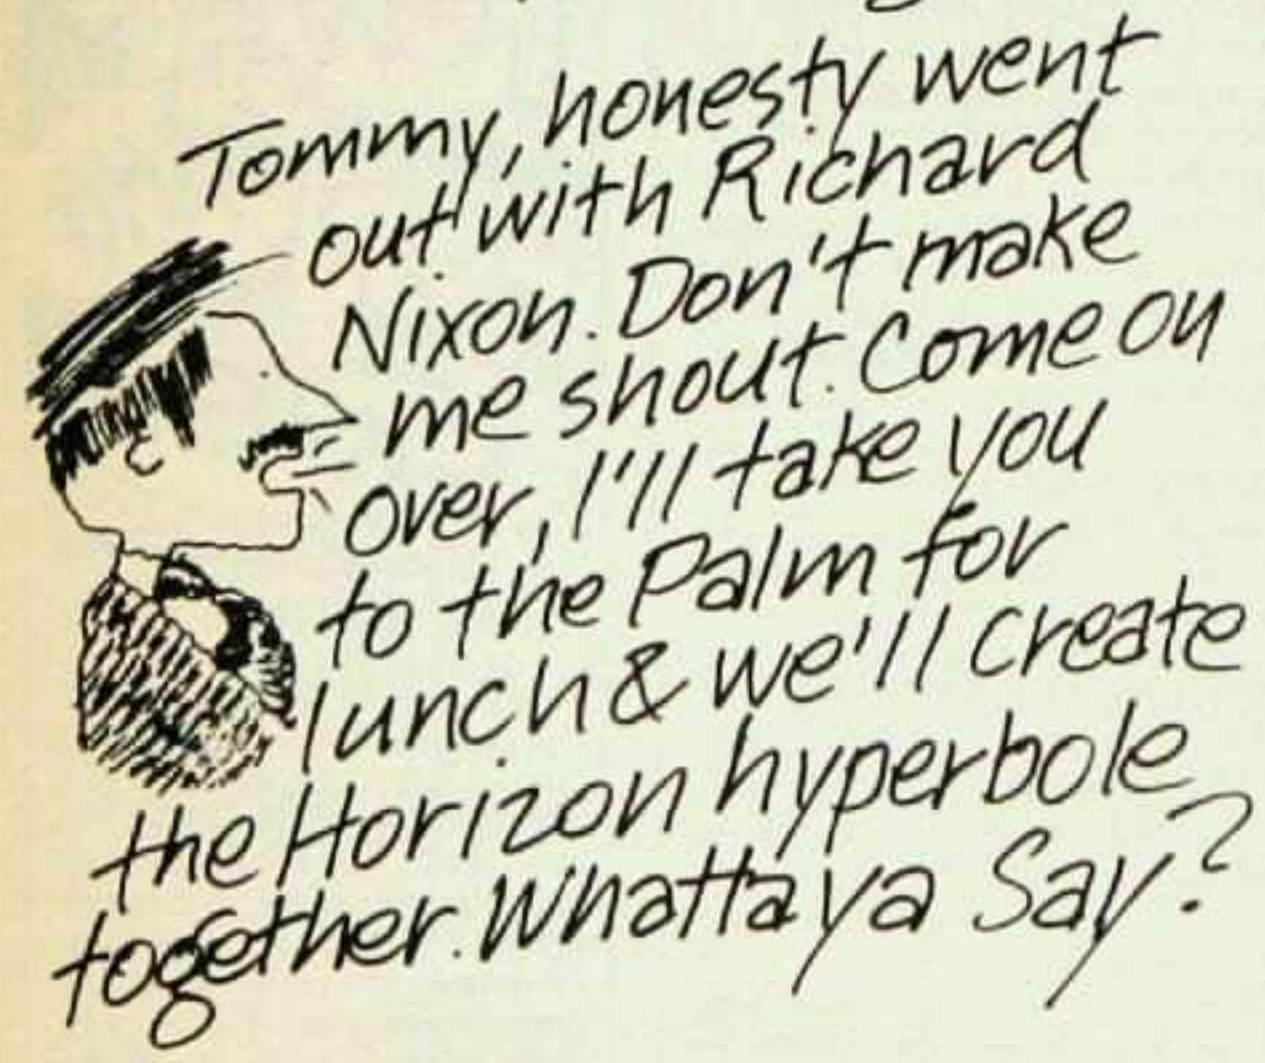 Tommy, honesty went
out with Richard
Nixon. Don't make
me shout. Come on
over, I'll take you
to the Palm for
lunch & we'll create
the Horizon hyperbole
together. Whattaya Say?